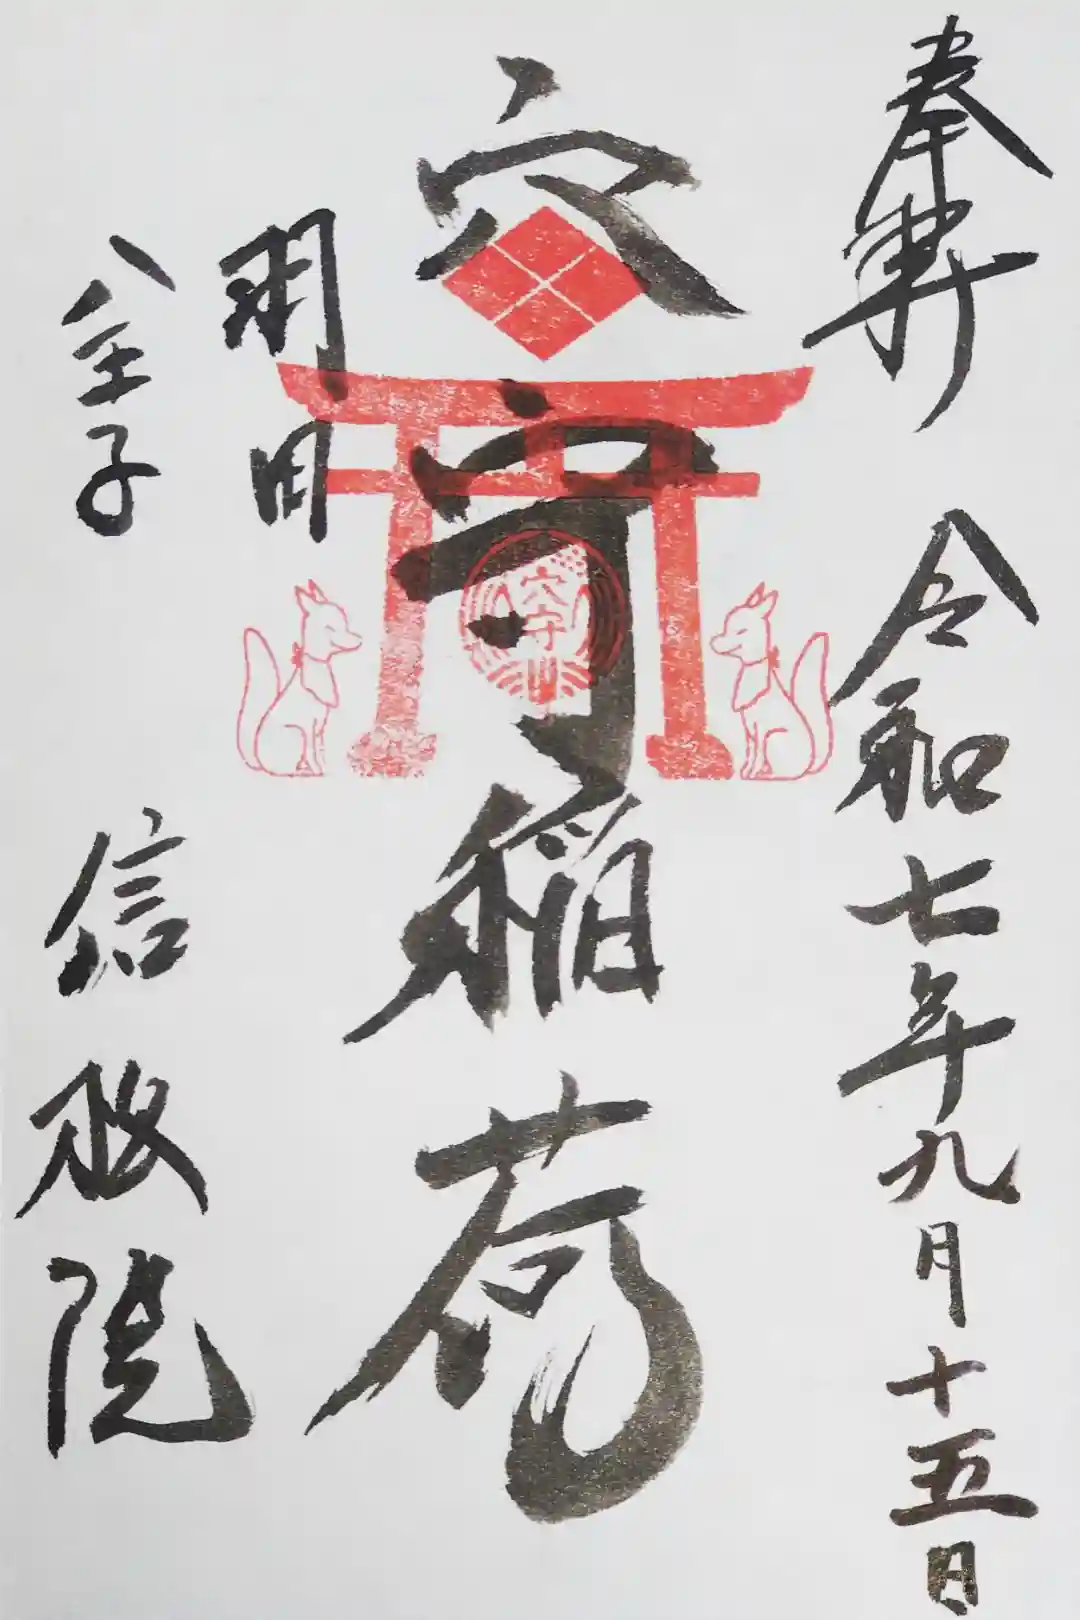 奉拝 令和七年九月十五日
穴守稲荷
穴守
羽田
八王子 信松院